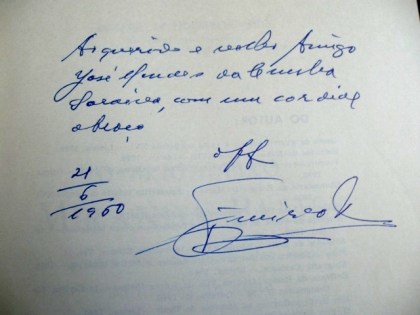 Ao querido e nobre Amigo
José Mendes da Cunha
Saraiva, com um cordial
abraço
off
21
6
1960